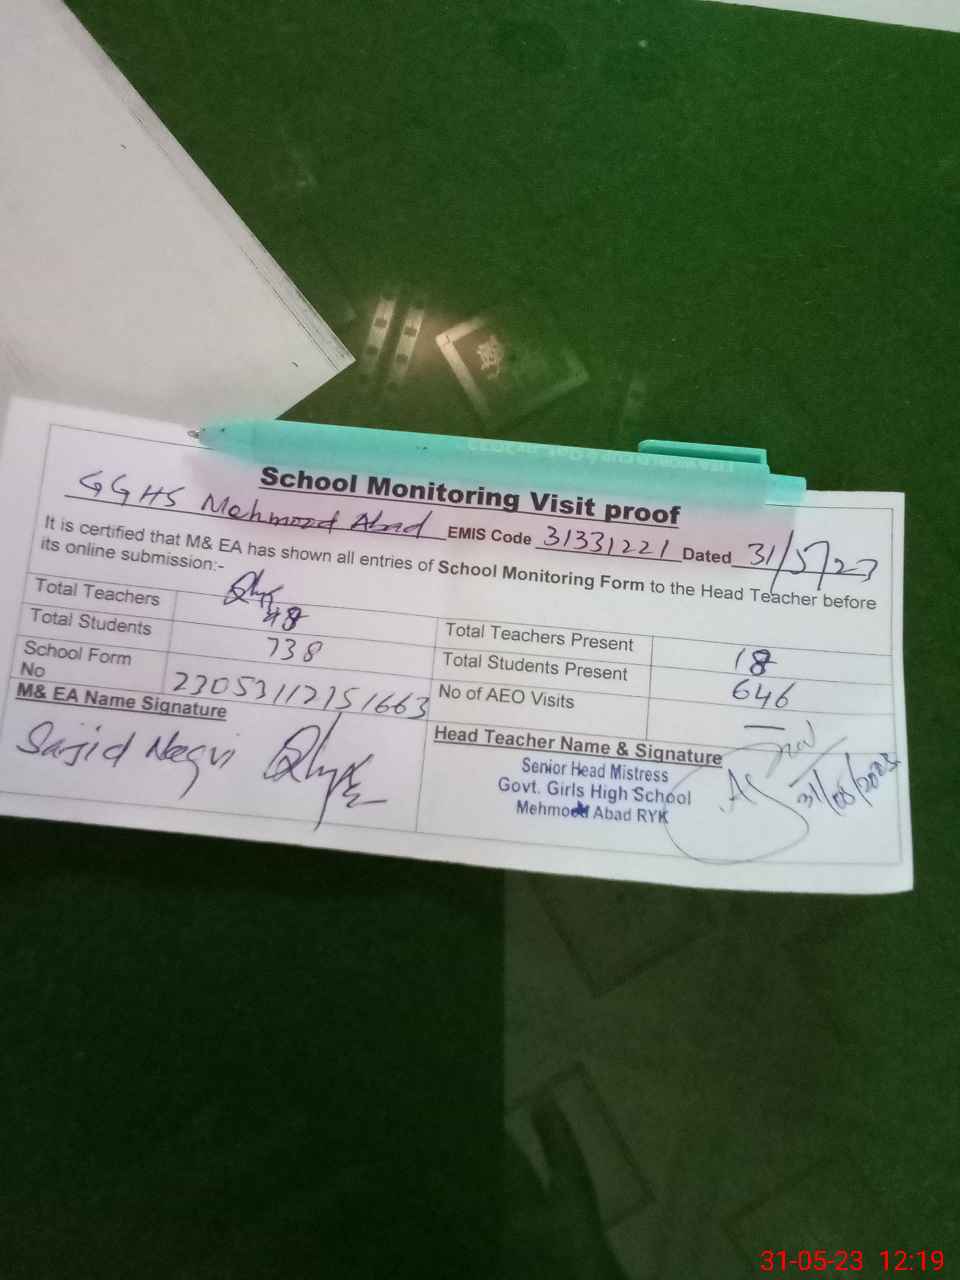 School Monitoring Visit proof
GGHS Mehmood Abad EMIS Code 31331221 Dated 31/5/23
It is certified that M& EA has shown all entries of School Monitoring Form to the Head Teacher before
its online submission:-
Total Teachers 18 Total Teachers Present 18
Total Students 738 Total Students Present 646
School Form No 23053112151663 No of AEO Visits —
M& EA Name Signature Head Teacher Name & Signature
Sajid Naqvi
Senior Head Mistress
Govt. Girls High School
Mehmood Abad RYK
31/05/2023
31-05-23 12:19